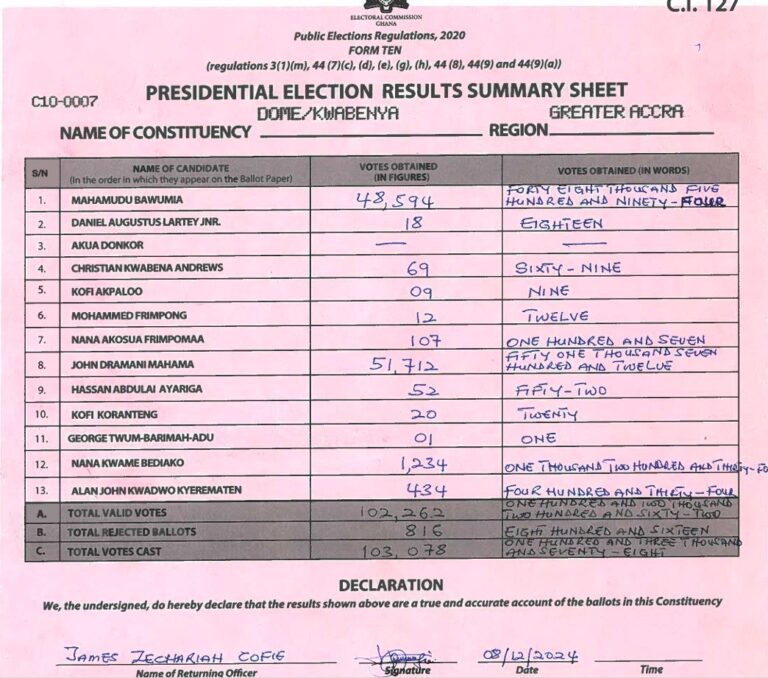 C.I. 127
ELECTORAL COMMISSION
GHANA
Public Elections Regulations, 2020
FORM TEN
(regulations 3(1)(m), 44 (7)(c), (d), (e), (g), (h), 44 (8), 44(9) and 44(9)(a))
PRESIDENTIAL ELECTION RESULTS SUMMARY SHEET
C10-0007
DOME/KWABENYA GREATER ACCRA
NAME OF CONSTITUENCY REGION
S/N NAME OF CANDIDATE (In the order in which they appear on the Ballot Paper) VOTES OBTAINED (IN FIGURES) VOTES OBTAINED (IN WORDS)
1. MAHAMUDU BAWUMIA 48,594 FORTY EIGHT THOUSAND FIVE HUNDRED AND NINETY-FOUR
2. DANIEL AUGUSTUS LARTEY JNR. 18 EIGHTEEN
3. AKUA DONKOR — —
4. CHRISTIAN KWABENA ANDREWS 69 SIXTY-NINE
5. KOFI AKPALOO 09 NINE
6. MOHAMMED FRIMPONG 12 TWELVE
7. NANA AKOSUA FRIMPOMAA 107 ONE HUNDRED AND SEVEN
8. JOHN DRAMANI MAHAMA 51,712 FIFTY ONE THOUSAND SEVEN HUNDRED AND TWELVE
9. HASSAN ABDULAI AYARIGA 52 FIFTY-TWO
10. KOFI KORANTENG 20 TWENTY
11. GEORGE TWUM-BARIMAH-ADU 01 ONE
12. NANA KWAME BEDIAKO 1,234 ONE THOUSAND TWO HUNDRED AND THIRTY-FO
13. ALAN JOHN KWADWO KYEREMATEN 434 FOUR HUNDRED AND THIRTY-FOUR
A. TOTAL VALID VOTES 102,262 ONE HUNDRED AND TWO THOUSAND TWO HUNDRED AND SIXTY-TWO
B. TOTAL REJECTED BALLOTS 816 EIGHT HUNDRED AND SIXTEEN
C. TOTAL VOTES CAST 103,078 ONE HUNDRED AND THREE THOUSAND AND SEVENTY-EIGHT
DECLARATION
We, the undersigned, do hereby declare that the results shown above are a true and accurate account of the ballots in this Constituency
JAMES ZECHARIAH COFIE 08/12/2024
Name of Returning Officer Signature Date Time